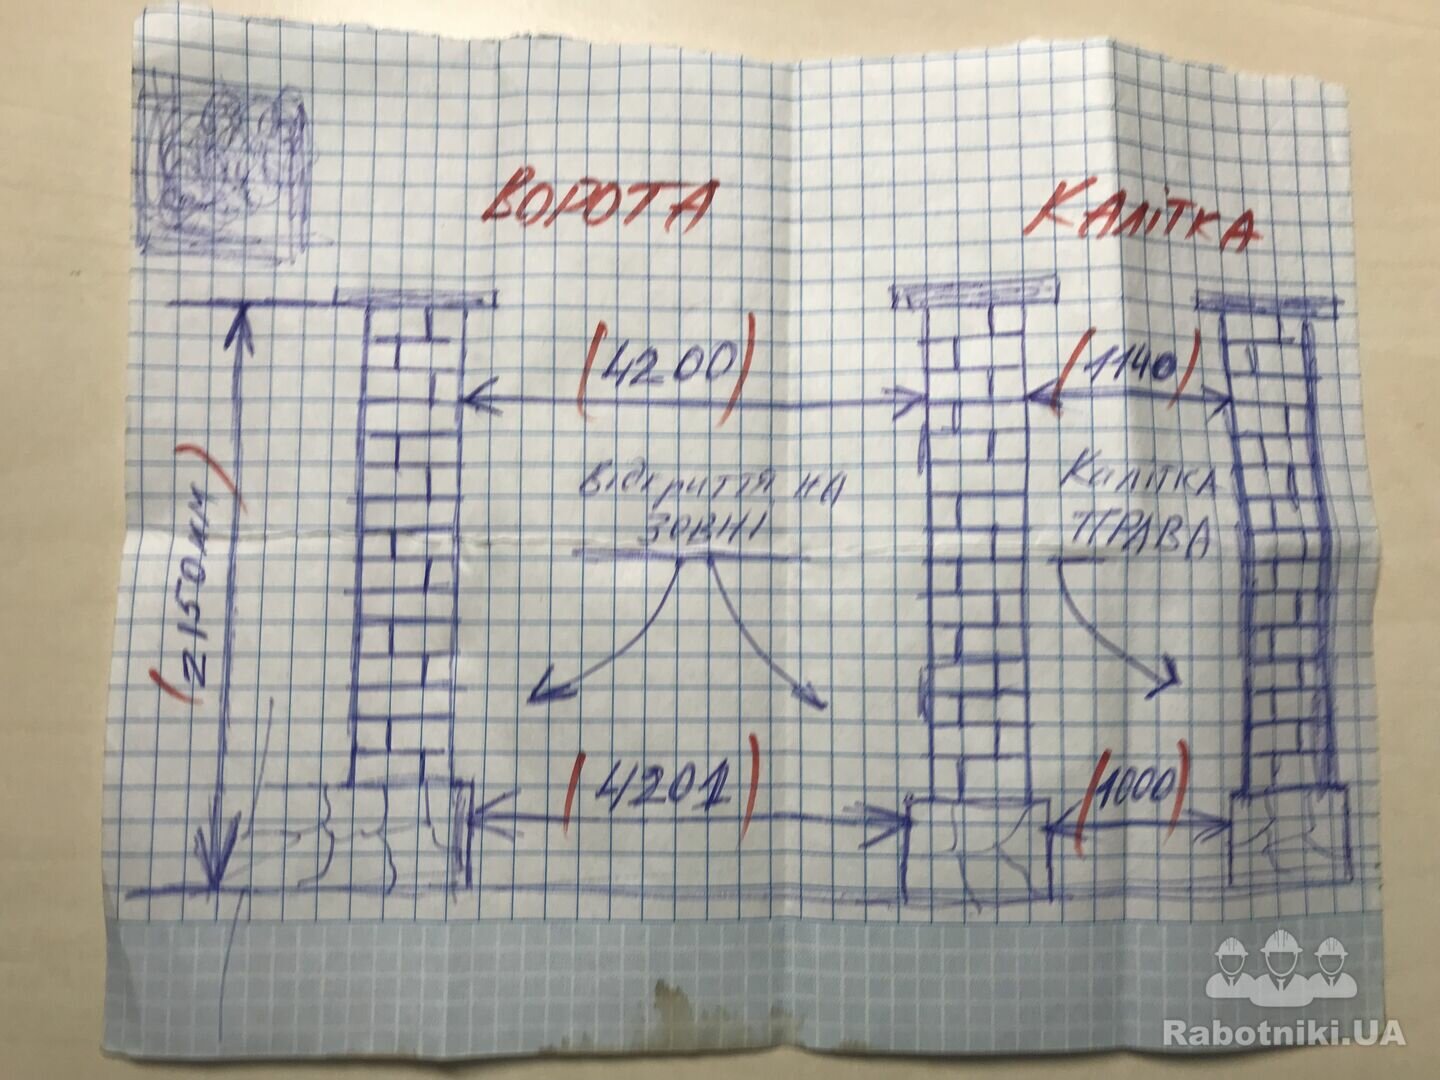 ВОРОТА
КАЛІТКА
(4200)
(1140)
Відкриття на
зовні
Калітка
ПРАВА
(2150мм)
(4201)
(1000)
Rabotniki.UA